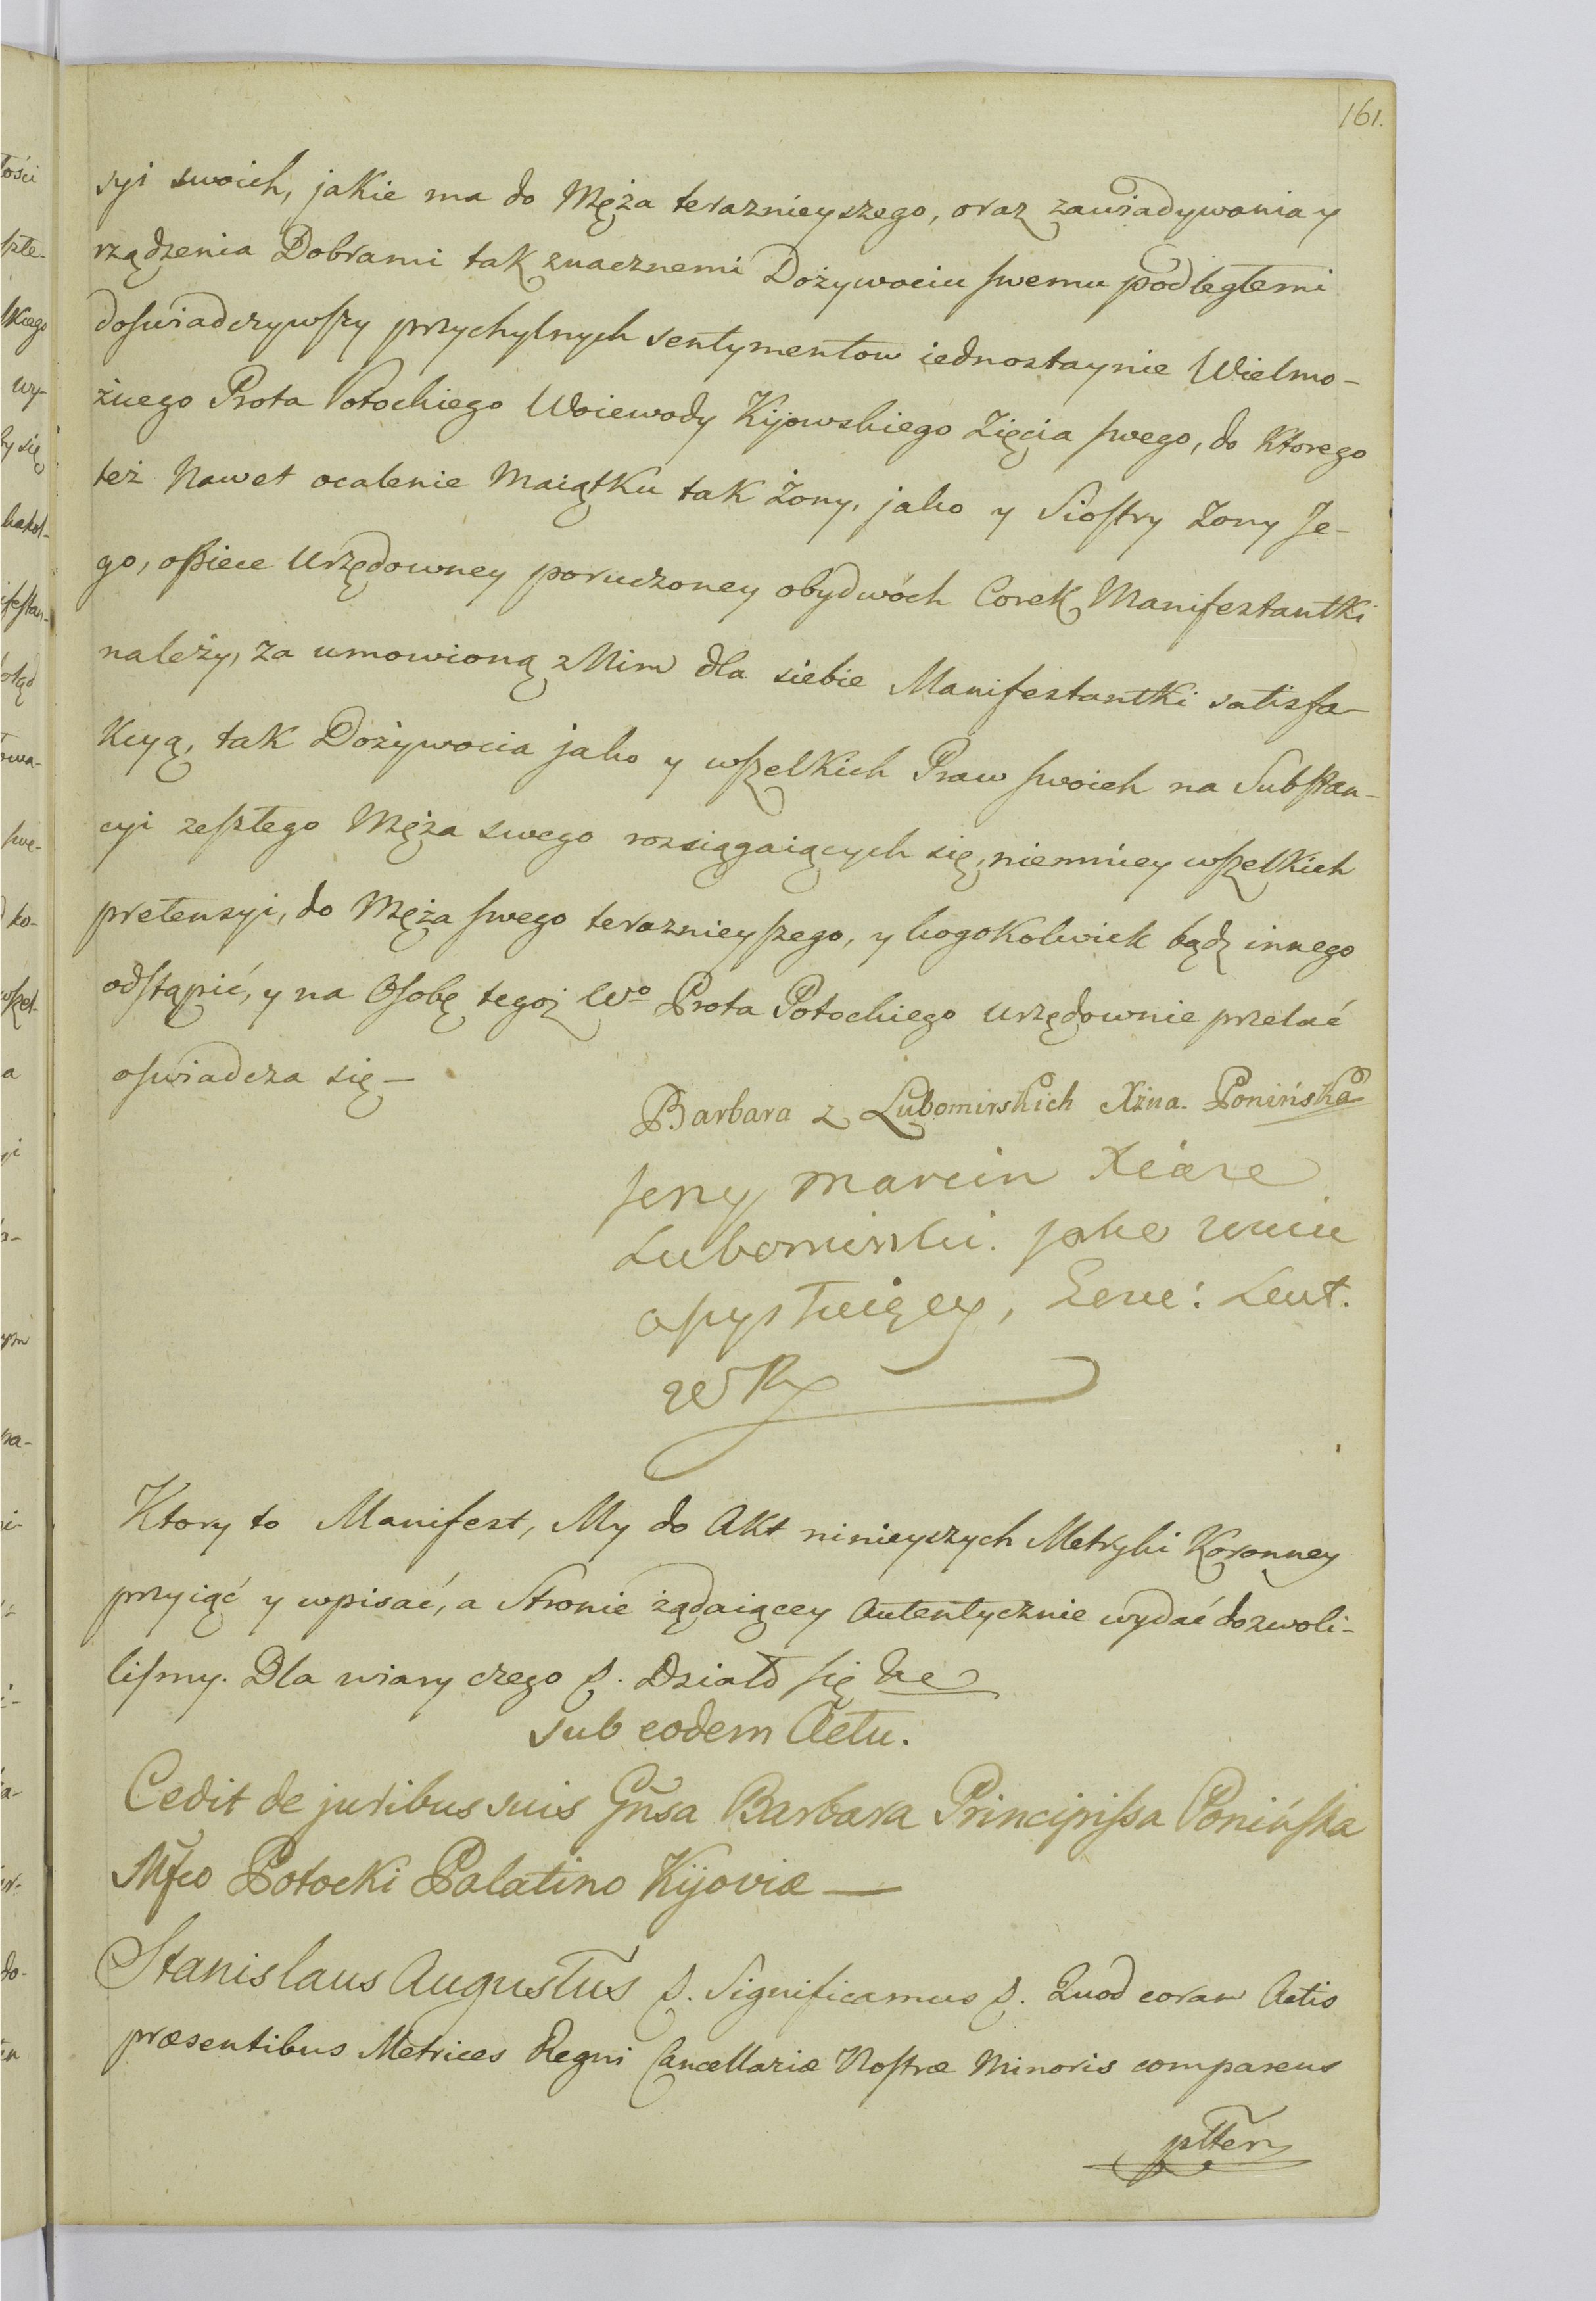 161.
syi swoich, jakie ma do Męża teraznieyszego, oraz zawiadywania y
rządzenia Dobrami tak znacznemi Dożywociu swemu podległemi
doświadczywszy przychylnych sentymentow iednostaynie Wielmo-
żnego Prota Potockiego Woiewody Kijowskiego Zięcia swego, do Ktorego
też Nawet ocalenie Maiątku tak Żony, jako y Siostry Żony Je-
go, opiece Urzędowney poruczoney obydwóch Corek Manifestantki
należy, za umowioną z Nim dla siebie Manifestantki satisfa-
Kcyą, tak Dożywocia jako y wszelkich Praw swoich na Substan-
cyi zeszłego Męża swego rozsiągaiących się, niemniey wszelkich
pretensyi, do Męża swego teraznieyszego, y kogoKolwiek bądź innego
odstąpić, y na Osobę tegoż Wo Prota Potockiego urzędownie przelać
oswiadcza się —
Barbara z Lubomirskich Xżna. Ponińska
Jerzy Marcin Xiąże
Lubomirski. jako
Gene: Leut.
WK
Ktory to Manifest, My do Akt ninieyszych Metryki Koronney
przyiąć y wpisać, a Stronie żądaiącey Autentycznie wydać dozwoli-
lismy. Dla wiary czego p. Działo się
sub eodem Actu.
Cedit de juribus suis Gnsa Barbara Principissa Ponińska
Mfco Potocki Palatino Kijoviæ —
Stanislaus Augustus p. Significamus p. Quod coram Actis
præsentibus Metrices Regni Cancellariæ Nostræ Minoris comparens
pltter